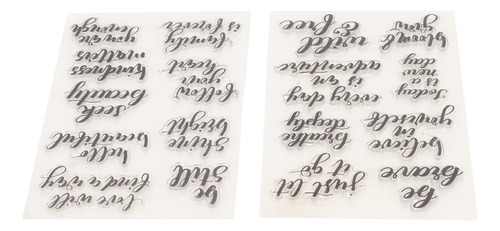 you are
enough
family
is forever
kindness
matters
follow
your
heart
seek
beauty
shine
bright
hello
beautiful
be
still
love will
find a way
wild
& free
bloom &
grow
every day
is an
adventure
Today
is a
new
day
breathe
deeply
believe
in
yourself
just let
it go
be
brave